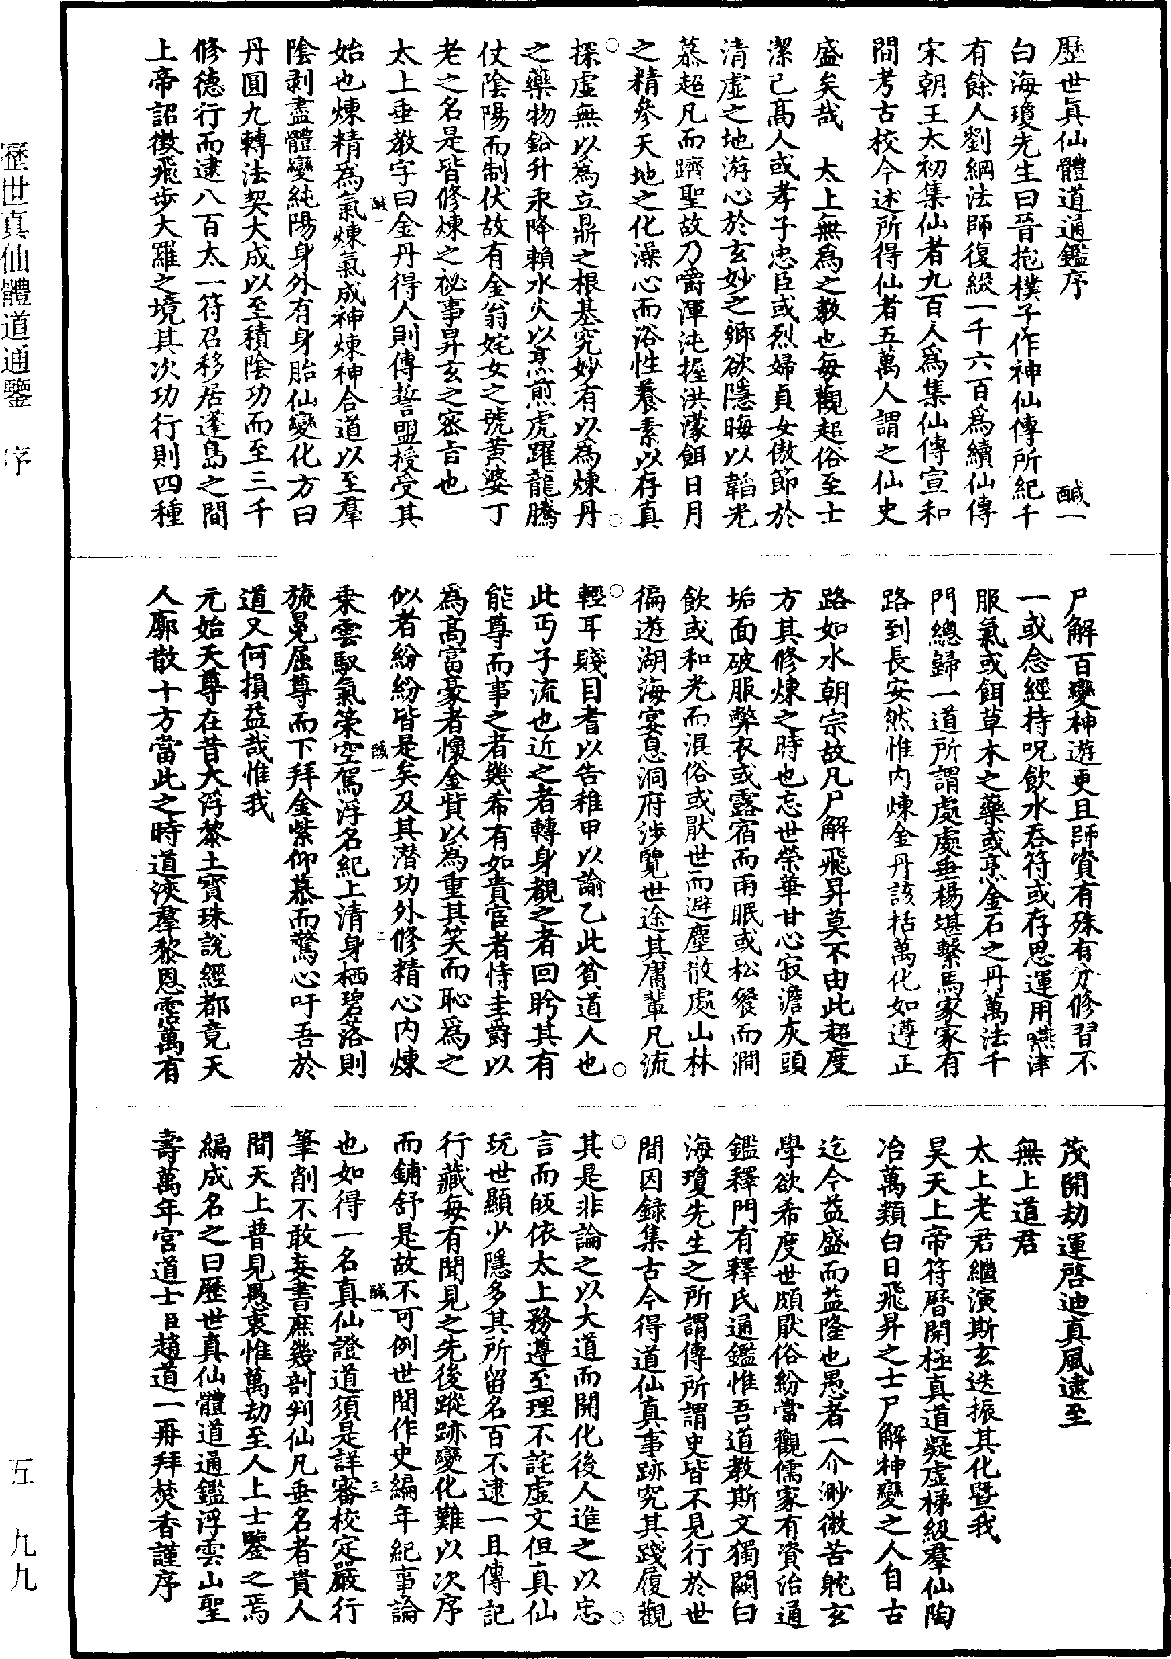 歷世真仙體道通鑑序
醎一
白海瓊先生曰晉抱樸子作神仙傳所紀千
有餘人劉綱法師復綴一千六百為續仙傳
宋朝王太初集仙者九百人為集仙傳宣和
間考古校今述所得仙者五萬人謂之仙史
盛矣哉　太上無為之教也每觀超俗至士
潔己高人或孝子忠臣或烈婦貞女傲節於
清虛之地游心於玄妙之鄉欲隱晦以韜光
慕超凡而躋聖故乃嚼渾沌握洪濛餌日月
之精參天地之化澡心而浴性養素以存真
探虛無以為立鼎之根基究妙有以為煉丹
之藥物鉛升汞降賴水火以烹煎虎躍龍騰
仗陰陽而制伏故有金翁姹女之號黃婆丁
老之名是皆修煉之祕事昇玄之密旨也
太上垂教字曰金丹得人則傳誓盟授受其
醎一
始也煉精為氣煉氣成神煉神合道以至羣
陰剥盡體變純陽身外有身胎仙變化方曰
丹圓九轉法契大成以至積陰功而至三千
修德行而逮八百太一符召移居蓬島之間
上帝詔徵飛步大羅之境其次功行則四種
尸解百變神遊更且師資有殊有分修習不
一或念經持呪飲水吞符或存思運用嚥津
服氣或餌草木之藥或烹金石之丹萬法千
門總歸一道所謂處處垂楊堪繫馬家家有
路到長安然惟內煉金丹該括萬化如遵正
路如水朝宗故凡尸解飛昇莫不由此超度
方其修煉之時也忘世榮華甘心寂澹灰頭
垢面破服弊衣或露宿而雨眠或松餐而澗
飲或和光而混俗或厭世而避塵散處山林
徧遊湖海宴息洞府涉覽世途其庸輩凡流
輕耳賤目者以告稚甲以諭乙此貧道人也
此丐子流也近之者轉身觀之者回眄其有
能尊而事之者幾希有如貴官者恃圭爵以
為高富豪者懷金貲以為重其笑而恥為之
似者紛紛皆是矣及其潜功外修精心內煉
醎一
二
乘雲馭氣策空駕浮名紀上清身栖碧落則
旒冕屈尊而下拜金紫仰慕而驚心吁吾於
道又何損益哉惟我
元始天尊在昔大浮黎土寶珠說經都竟天
人廓散十方當此之時道浹羣黎恩霑萬有
茂開劫運啓迪真風逮至
無上道君
太上老君繼演斯玄迭振其化暨我
昊天上帝符曆開極真道凝虛梯級羣仙陶
冶萬類白日飛昇之士尸解神變之人自古
迄今益盛而益隆也愚者一介渺微苦躭玄
學欲希度世頗厭俗紛常觀儒家有資治通
鑑釋門有釋氏通鑑惟吾道教斯文獨闕白
海瓊先生之所謂傳所謂史皆不見行於世
間因錄集古今得道仙真事跡究其踐履觀
其是非論之以大道而開化後人進之以忠
言而皈依太上務遵至理不詫虛文但真仙
玩世顯少隱多其所留名百不逮一且傳記
行藏每有聞見之先後蹤跡變化難以次序
而鋪舒是故不可例世間作史編年紀事論
醎一
三
也如得一名真仙證道須是詳審校定嚴行
筆削不敢妄書庶幾剖判仙凡垂名者貫人
間天上普見愚衷惟萬劫至人上士鑒之焉
編成名之曰歷世真仙體道通鑑浮雲山聖
壽萬年宮道士臣趙道一再拜焚香謹序
歷世真仙體道通鑒　序
五　九九